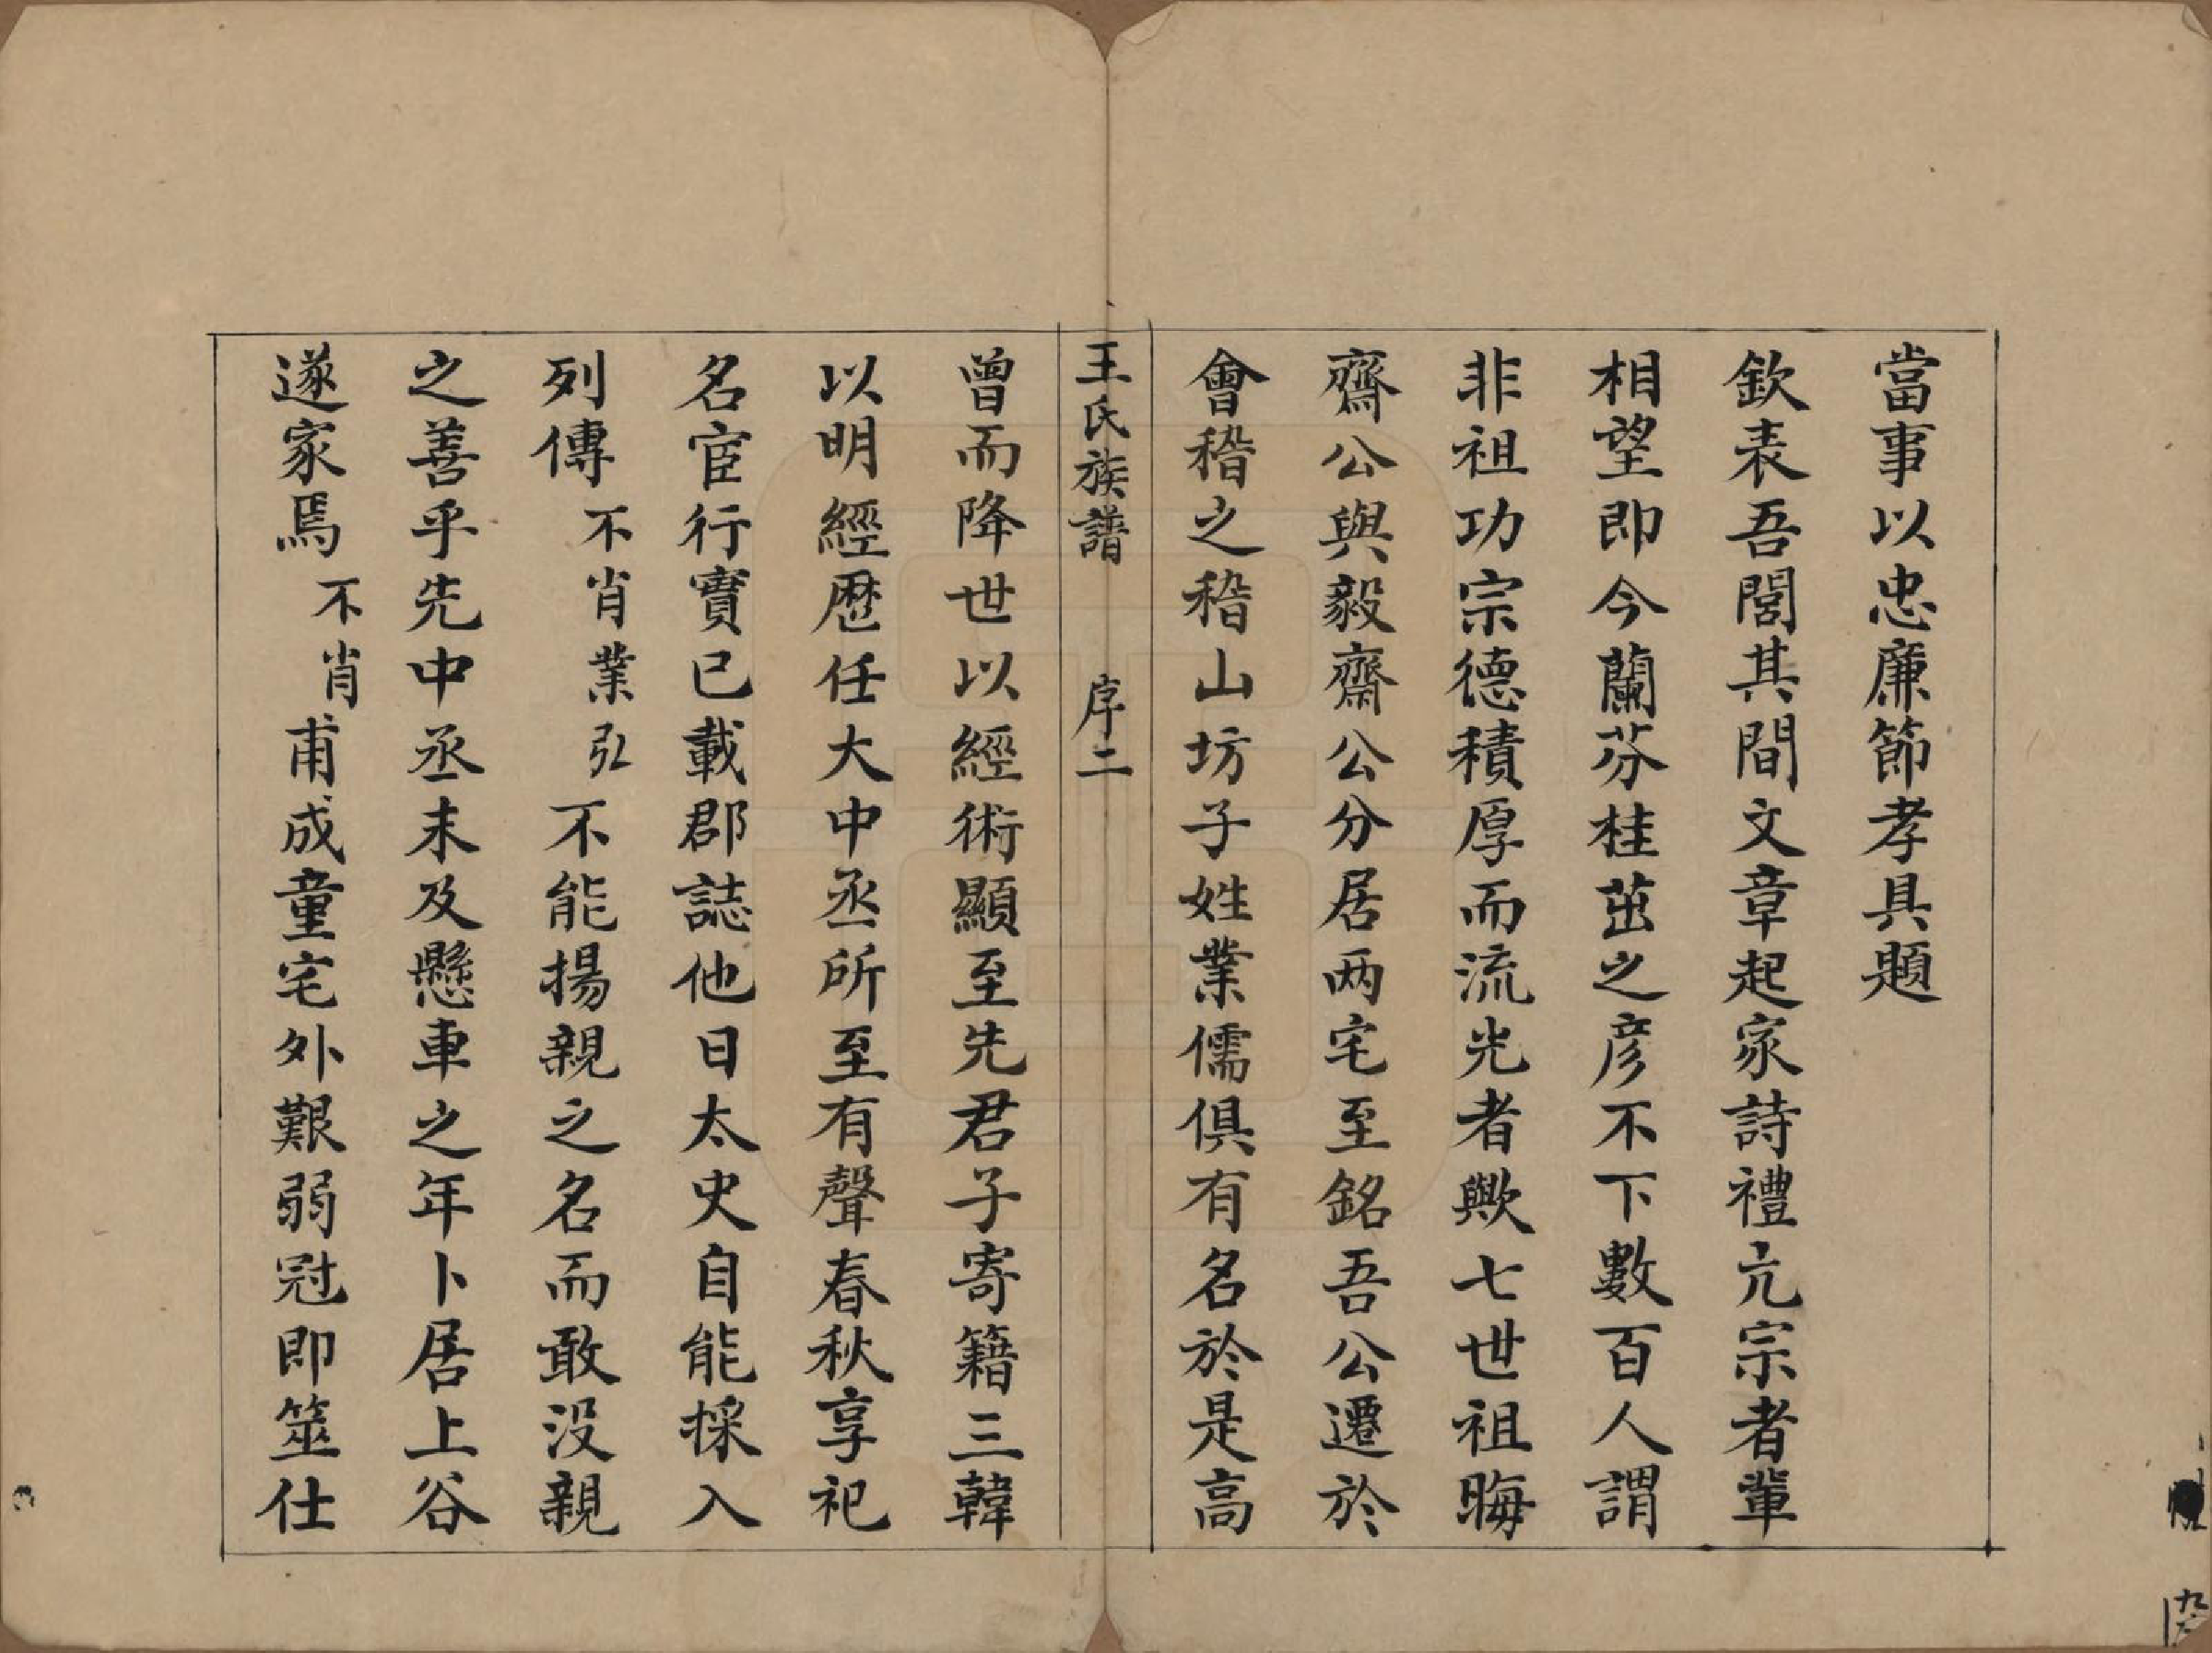 當事以忠廉節孝具題
欽表吾閭其間文章起家詩禮亢宗者輩
相望即今蘭芬桂茁之彦不下數百人謂
非祖功宗德積厚而流光者歟七世祖晦
齋公與毅齋公分居两宅至銘吾公遷於
會稽之稽山坊子姓業儒俱有名於是高
王氏族譜 序二
曾而降世以經術顯至先君子寄籍三韓
以明經歴任大中丞所至有聲春秋享祀
名宦行實已載郡誌他日太史自能採入
列傳不肖業弘不能揚親之名而敢没親
之善乎先中丞未及懸車之年卜居上谷
遂家焉不肖甫成童宅外艱弱冠即筮仕